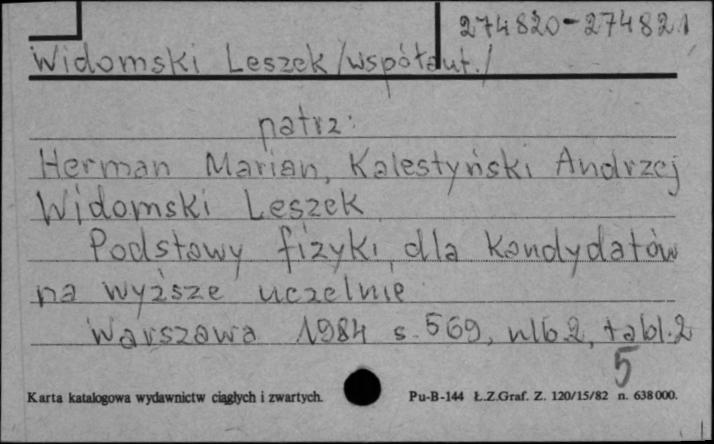 274820-274821
Widomski Leszek /współaut./
patrz:
Herman Marian, Kalestyński Andrzej
Widomski Leszek
Podstawy fizyki dla kandydatów
na wyższe uczelnie
Warszawa 1984 s. 569, nlb. 2, tabl. 2
5
Karta katalogowa wydawnictw ciągłych i zwartych. Pu-B-144 Ł.Z.Graf. Z. 120/15/82 n. 638000.